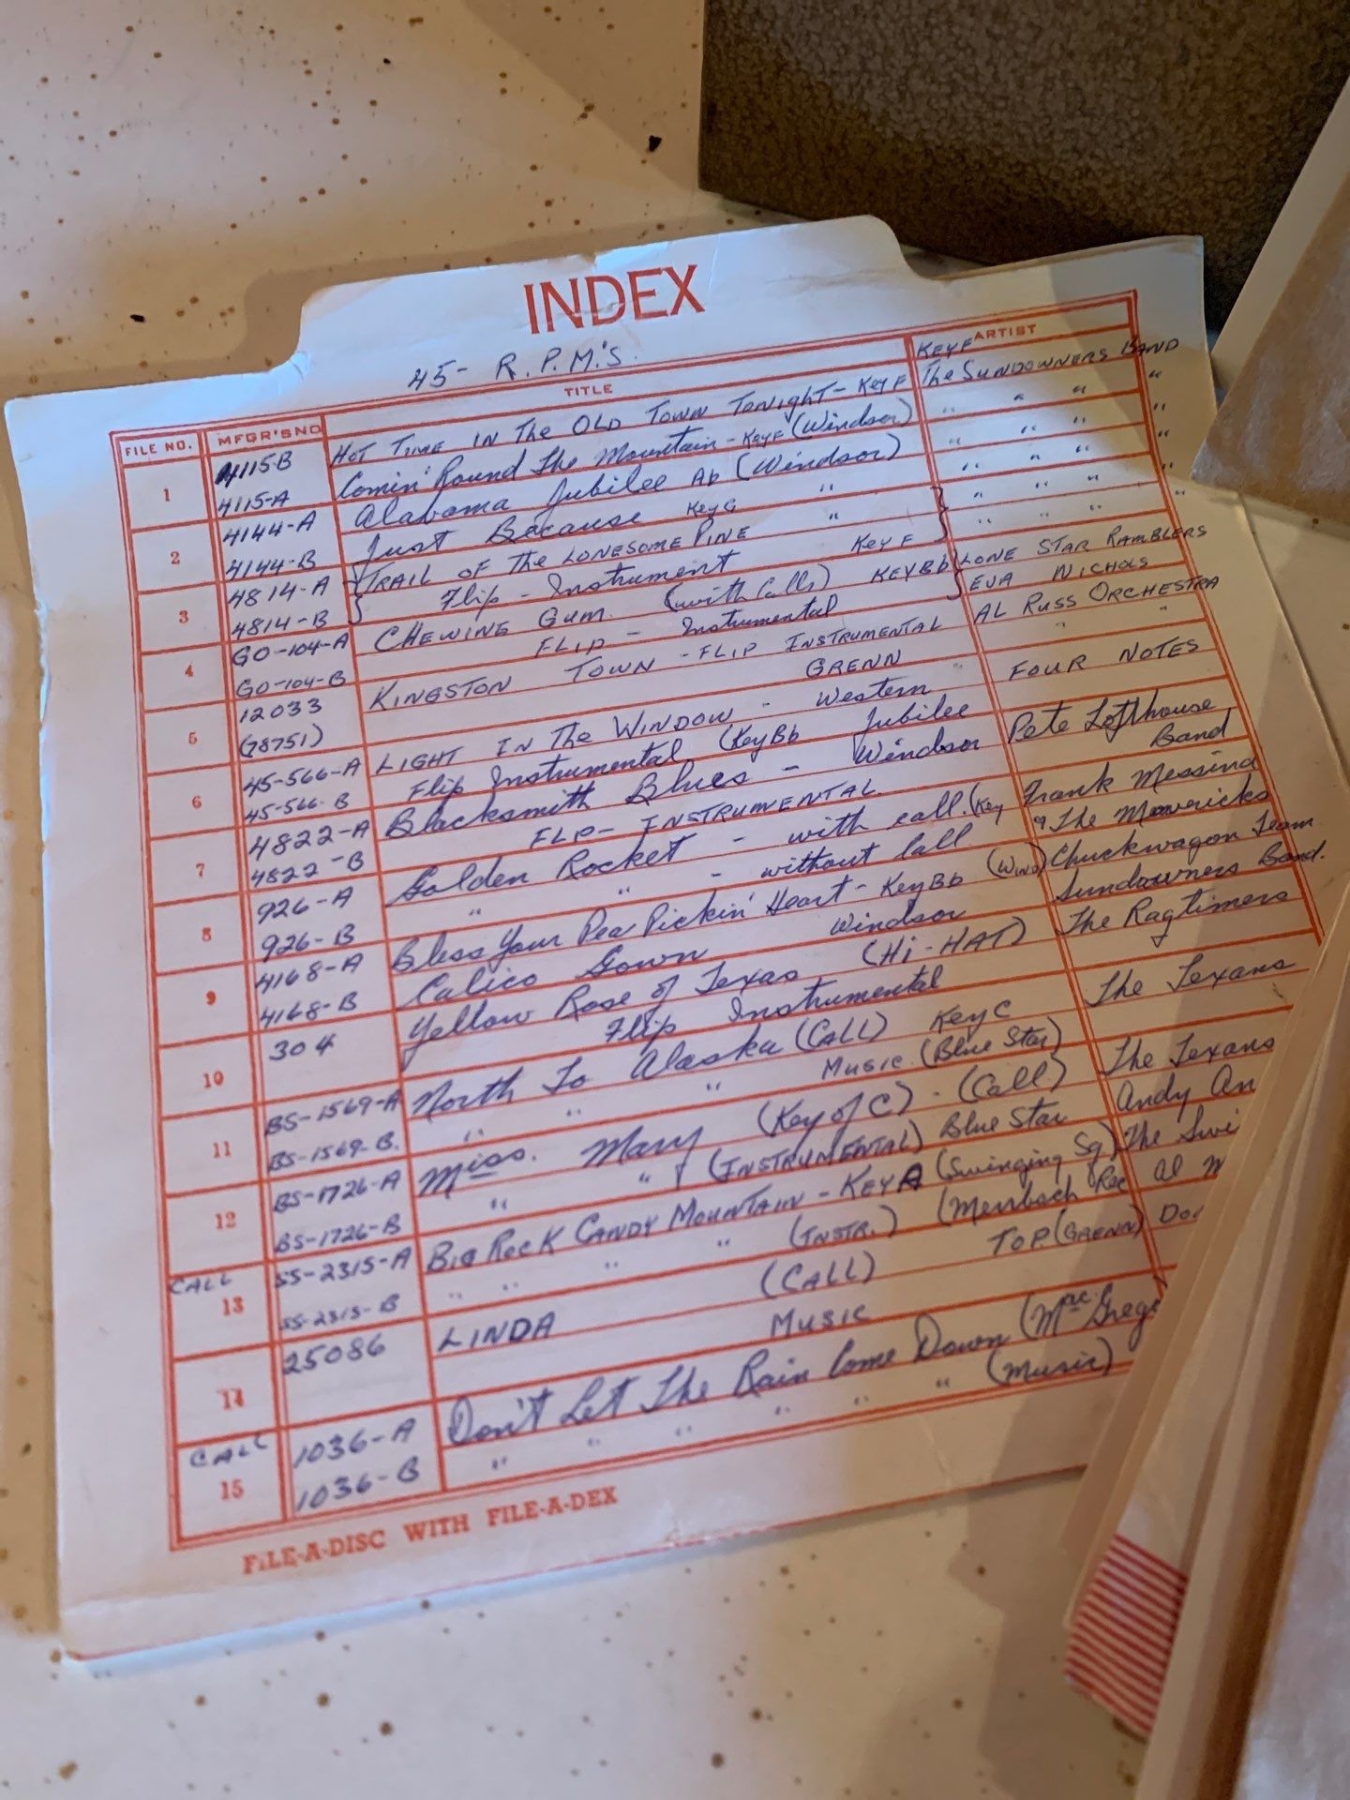 INDEX
45- R.P.M.'S.
FILE NO. MFGR'S NO TITLE KEY F ARTIST
4115-B HOT TIME IN The OLD TOWN TONighT- KEY F The SUNDOWNERS BAND
1 4115-A Comin' Round The Mountain - KEY F (Windsor) " " " "
4144-A Alabama Jubilee Ab (Windsor) " " " "
2 4144-B Just Because Key G " " " " "
4814-A TRAIL OF The LONESOME PINE " " " " "
3 4814-B Flip - Instrument Key F " " " "
GO-104-A CHEWING GUM. (with Calls) KEY Bb LONE STAR RAMBLERS
4 GO-104-B FLIP - Instrumental EVA NICHOLS
12033 KINGSTON TOWN - FLIP INSTRUMENTAL AL RUSS ORCHESTRA
5 (78751) GRENN "
45-566-A LIGHT IN The WINDOW - Western FOUR NOTES
6 45-566-B Flip Instrumental (Key Bb Jubilee
4822-A Blacksmith Blues - Windsor Pete Lofthouse
7 4822-B FLIP- INSTRUMENTAL. Band
926-A Golden Rocket - with call. (Key Frank Messina
8 926-B " " - without Call & The Mavericks
4168-A Bless Your Pea Pickin' Heart - Key Bb (WIND) Chuckwagon Team
9 4168-B Calico Gown Windsor Sundowners Band.
304 Yellow Rose of Texas (Hi-HAT) The Ragtimers
10 Flip Instrumental
BS-1569-A North To Alaska (CALL) Key C The Texans
11 BS-1569-B. " " " MUSIC. (Blue Star)
BS-1726-A Miss. Mary (Key of C) - (Call) The Texans
12 BS-1726-B " " (INSTRUMENTAL) Blue Star Andy An
CALL SS-2315-A BIG ROCK CANDY MOUNTAIN - KEY A (Swinging Sq) The Swi
13 SS-2315-B " " " " (INSTR.) (Merrbach Rec Al
25086 LINDA (CALL) TOP. (GRENN)
14 MUSIC
CALL 1036-A Don't Let The Rain Come Down (MacGreg
15 1036-B " " " " " " (Music)
FILE-A-DISC WITH FILE-A-DEX